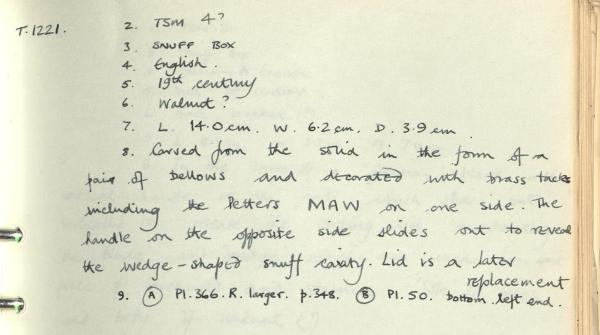 T.1221. 2. TSM 4?
3. SNUFF BOX
4. English.
5. 19th century
6. Walnut?
7. L. 14.0cm. W. 6.2cm. D. 3.9cm.
8. Carved from the solid in the form of a
pair of bellows and decorated with brass tacks
including the letters MAW on one side. The
handle on the opposite side slides out to reveal
the wedge-shaped snuff cavity. Lid is a later
replacement
9. (A) Pl.366.R. larger. p.348. (B) Pl.50. bottom left end.